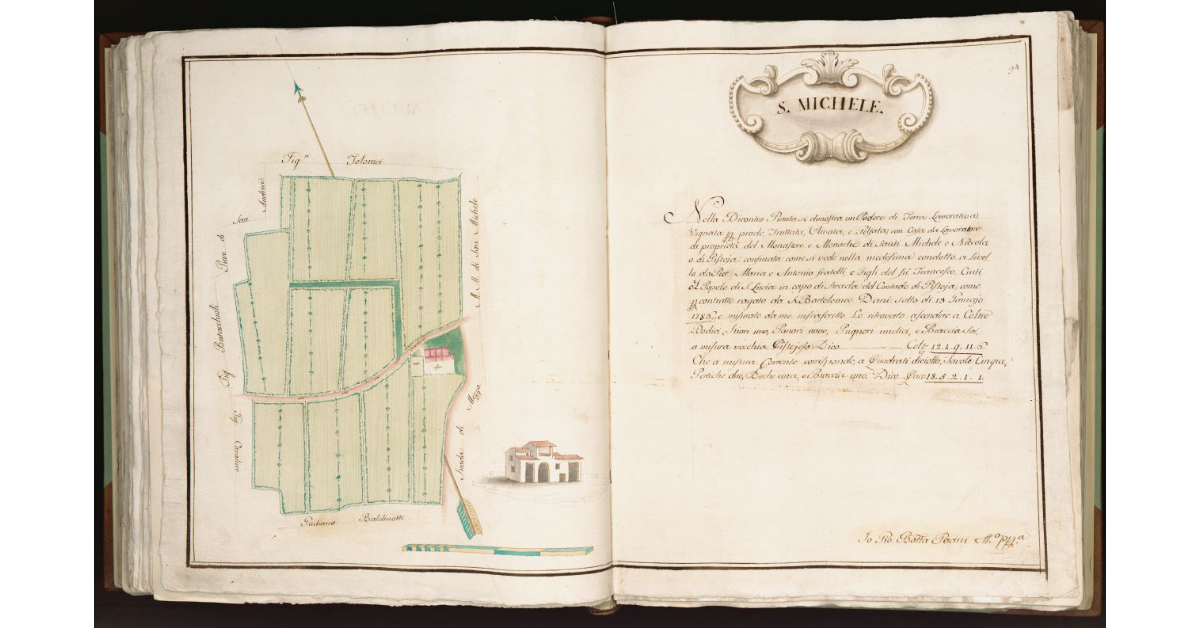 Sig.ri Tolomei
San Andrea
Pieve di
Sig. Bracciolini
Sig.
M. M. di San Michele
Strada di Mezzo
Giuliano Baldinotti
94
S. MICHELE.
Nella Dicontro Pianta si dimostra un Podere di Terra Lavorativa
Vignata p prode, fruttata, Olivata, e Gelsata, con Casa da Lavoratore
di proprietà del Monastero e Monache di Santi Michele e Niccola
o di Pistoja confinata come si vede nella medesima condotto a livel
lo da Pier Maria e Antonio fratelli, e figli del fù Francesco
del Popolo di S. Lucia in capo di Strada del Contado di Pistoja, come
p contratto rogato da S. Bartolomeo Dani sotto di 13
178 e misurato da me infrascritto Lo ritrovato ascendere a Coltre
Dodici, Stiori uno, Panori nove, Pugnori undici, e Braccia Sei
a misura vecchia Pistojese Dico Colt 12.1.9.11.6
Che a misura Corrente corrisponde a Quadrati diciotto, Tavole Cinque,
Pertiche due, Deche una, e Braccia una. Dico Qua 18.5.2.1.1.
Io Gio Batta